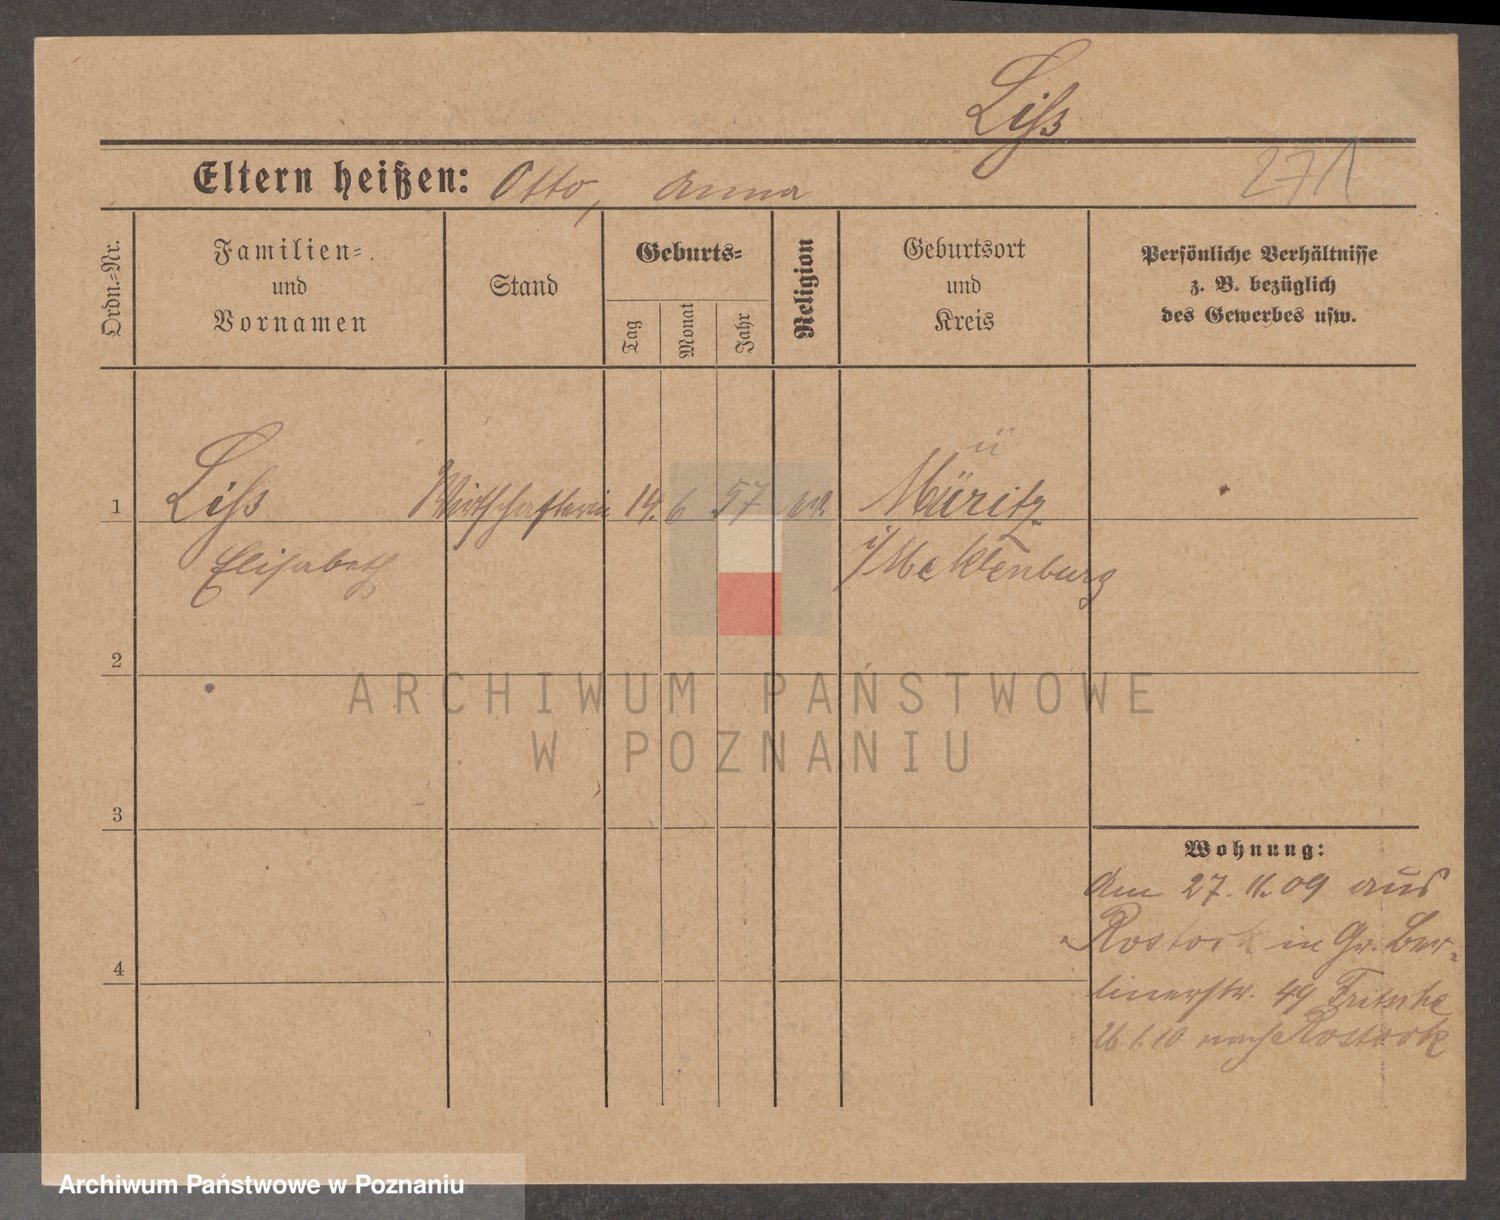 Liß
Eltern heißen: Otto, Anna
271
Ordn.-Nr.
Familien-
und
Vornamen
Stand
Geburts-
Tag
Monat
Jahr
Religion
Geburtsort
und
Kreis
Persönliche Verhältnisse
z. B. bezüglich
des Gewerbes usw.
ü
1 Liß Wirtschafterin 14. 6 57 Müritz
Elisabeth i/Mecklenburg
2
ARCHIWUM PAŃSTWOWE
W POZNANIU
3
Wohnung:
Am 27. 11. 09 aus
Rostock in Gr. Ber-
4
linerstr. 49 Fritsche
26 1. 10 nach Rostock
Archiwum Państwowe w Poznaniu